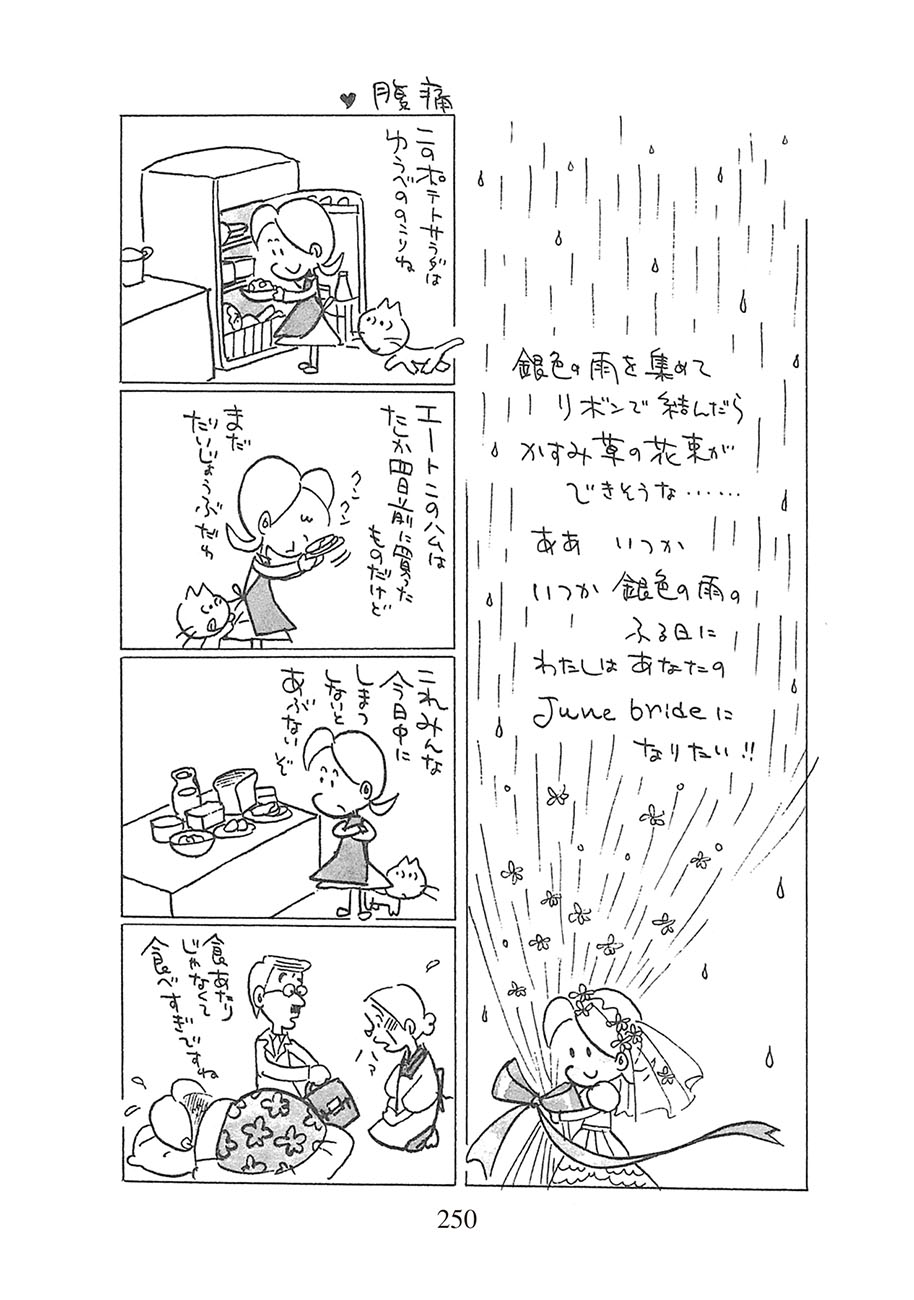 銀色の雨を集めて
リボンで結んだら
かすみ草の花束が
できそうな……
ああ いつか
いつか 銀色の雨の
ふる日に
わたしは あなたの
June brideに
なりたい!!
♥腹痛
このポテトサラダは
ゆうべののこりね
エートこのハムは
たしか四日前に買った
ものだけど
クン
クン
まだ
だいじょうぶだわ
これみんな
今日中に
しまつ
しないと
あぶないぞ
ハ?
食あたり
じゃなくて
食べすぎですね
250